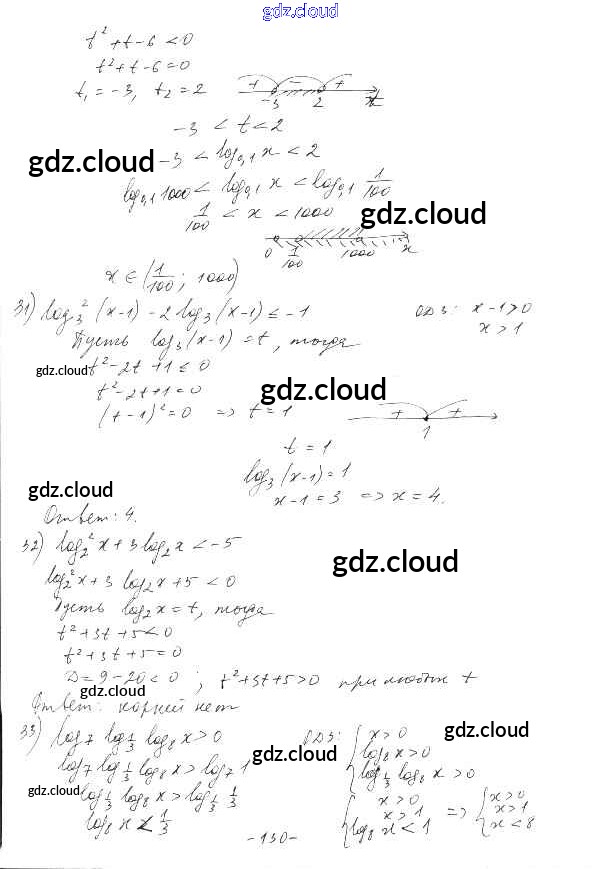 gdz.cloud
t² + t - 6 < 0
t² + t - 6 = 0
t₁ = -3, t₂ = 2
+ - +
-3 2 t
-3 < t < 2
gdz.cloud -3 < log₀,₁ x < 2
log₀,₁ 1000 < log₀,₁ x < log₀,₁ 1/100
1/100 < x < 1000 gdz.cloud
0 1/100 1000 x
x ∈ (1/100; 1000)
31) log₃² (x-1) - 2 log₃ (x-1) ≤ -1 ОДЗ: x-1>0
x>1
Пусть log₃(x-1) = t, тогда
gdz.cloud t² - 2t + 1 ≤ 0
t² - 2t + 1 = 0 gdz.cloud
(t-1)² = 0 => t = 1
+ +
1
t = 1
log₃ (x-1) = 1
x-1 = 3 => x = 4.
gdz.cloud
Ответ: 4.
32) log₂² x + 3 log₂ x < -5
gdz.cloud
log₂² x + 3 log₂ x + 5 < 0
Пусть log₂ x = t, тогда
t² + 3t + 5 < 0
t² + 3t + 5 = 0
D = 9 - 20 < 0; t² + 3t + 5 > 0 при любых t
gdz.cloud
Ответ: корней нет
33) log₇ log_1/3 log₈ x > 0 ОДЗ: { x > 0
log₈ x > 0
log_1/3 log₈ x > 0
gdz.cloud
log₇ log_1/3 log₈ x > log₇ 1 gdz.cloud
gdz.cloud log_1/3 log₈ x > log_1/3 1/3
{ x > 0
x > 1
log₈ x < 1 => { x > 0
x > 1
x < 8
log₈ x < 1/3
-130-